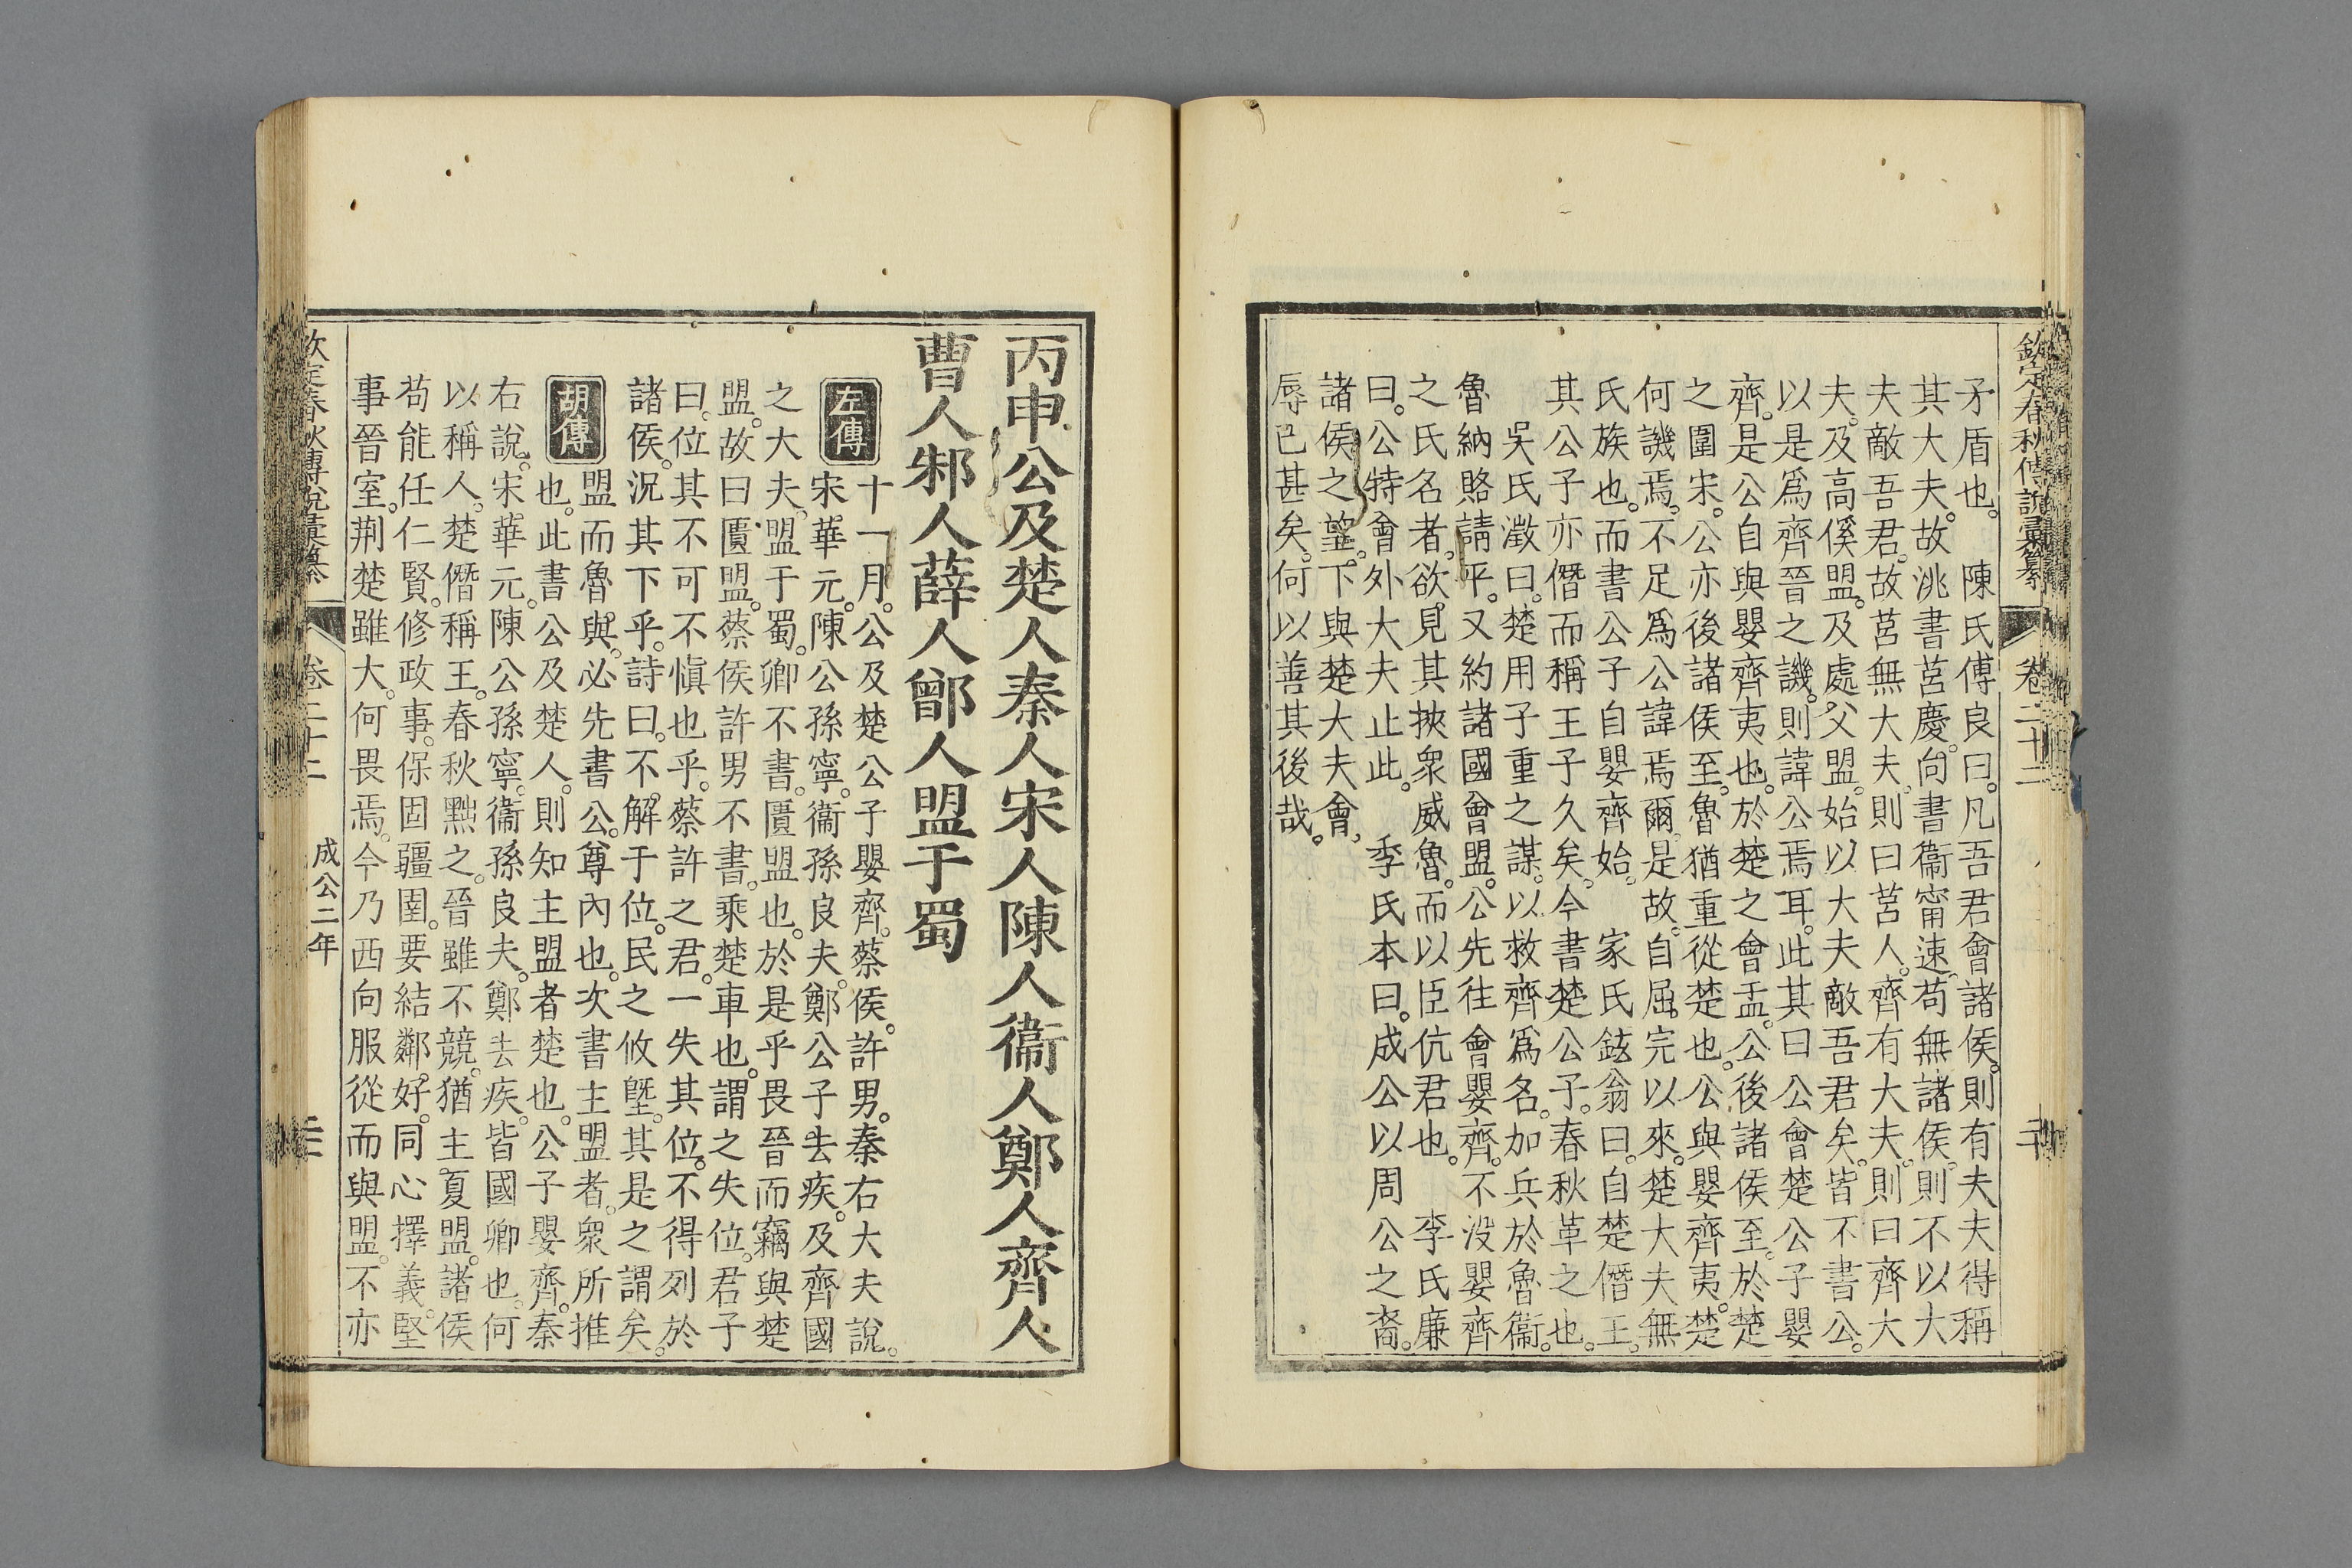 欽定春秋傳說彙纂 卷二十二 二十
矛盾也。 陳氏傅良曰。凡吾君會諸侯。則有夫夫得稱
其大夫。故洮書莒慶。向書衞甯速。苟無諸侯。則不以大
夫敵吾君。故莒無大夫。則曰莒人。齊有大夫。則曰齊大
夫。及高傒盟。及處父盟。始以大夫敵吾君矣。皆不書公。
以是爲齊晉之譏。則諱公焉耳。此其曰公會楚公子嬰
齊。是公自與嬰齊夷也。於楚之會盂。公後諸侯至。於楚
之圍宋。公亦後諸侯至。魯猶重從楚也。公與嬰齊夷。楚
何譏焉。不足爲公諱焉爾。是故。自屈完以來。楚大夫無
氏族也。而書公子自嬰齊始。 家氏鉉翁曰。自楚僭王。
其公子亦僭而稱王子久矣。今書楚公子。春秋革之也。
吳氏澂曰。楚用子重之謀。以救齊爲名。加兵於魯衞。
魯納賂請平。又約諸國會盟。公先往會嬰齊。不没嬰齊
之氏名者。欲見其挾衆威魯。而以臣伉君也。 李氏廉
曰。公特會外大夫止此。 季氏本曰。成公以周公之裔。
諸侯之望。下與楚大夫會。
辱已甚矣。何以善其後哉。
丙申公及楚人秦人宋人陳人衞人鄭人齊人
曹人邾人薛人鄫人盟于蜀
左傳 十一月。公及楚公子嬰齊。蔡侯。許男。秦右大夫說。
宋華元。陳公孫寧。衞孫良夫。鄭公子去疾。及齊國
之大夫。盟于蜀。卿不書。匱盟也。於是乎畏晉而竊與楚
盟。故曰匱盟。蔡侯許男不書。乘楚車也。謂之失位。君子
曰。位其不可不慎也乎。蔡許之君。一失其位。不得列於
諸侯。況其下乎。詩曰。不解于位。民之攸塈。其是之謂矣。
胡傳 盟而魯與。必先書公。尊內也。次書主盟者。衆所推
也。此書公及楚人。則知主盟者楚也。公子嬰齊。秦
右說。宋華元。陳公孫寧。衞孫良夫。鄭去疾。皆國卿也。何
以稱人。楚僭稱王。春秋黜之。晉雖不競。猶主夏盟。諸侯
苟能任仁賢。修政事。保固疆圉。要結鄰好。同心擇義。堅
事晉室。荆楚雖大。何畏焉。今乃西向服從而與盟。不亦
欽定春秋傳說彙纂 卷二十二 成公二年